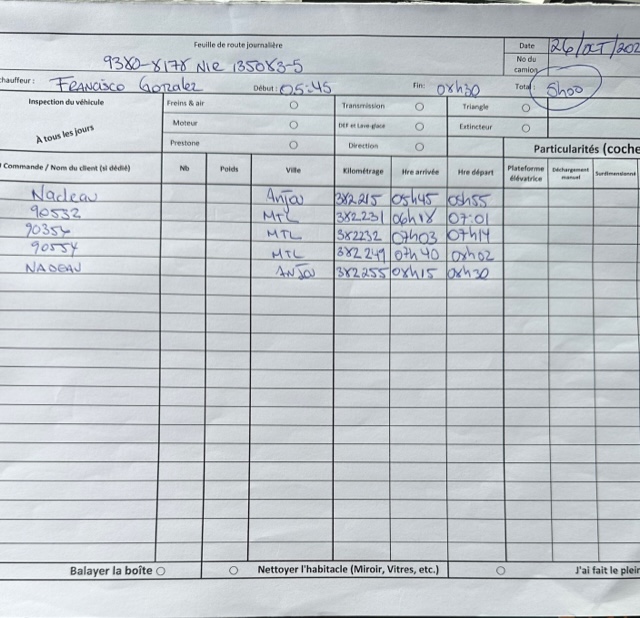 Feuille de route journalière
Date 26/OCT/202
9380-8178 NIR 135083-5
No du camion
Chauffeur : Francisco Gonzalez Début : 05:45 Fin: 08h30 Total: 5h00
Inspection du véhicule Freins & air Transmission Triangle
A tous les jours Moteur DEF et Lave-glace Extincteur
Prestone Direction Particularités (coche
Commande / Nom du client (si dédié) Nb Poids Ville Kilométrage Hre arrivée Hre départ Plateforme élévatrice Déchargement manuel Surdimensionné
Nadeau Anjou 382215 05h45 05h55
90532 MTL 382231 06h18 07:01
90354 MTL 382232 07h03 07h14
90554 MTL 382249 07h40 08h02
NADEAU ANJOU 382255 08h15 08h30
Balayer la boîte Nettoyer l'habitacle (Miroir, Vitres, etc.) J'ai fait le plein